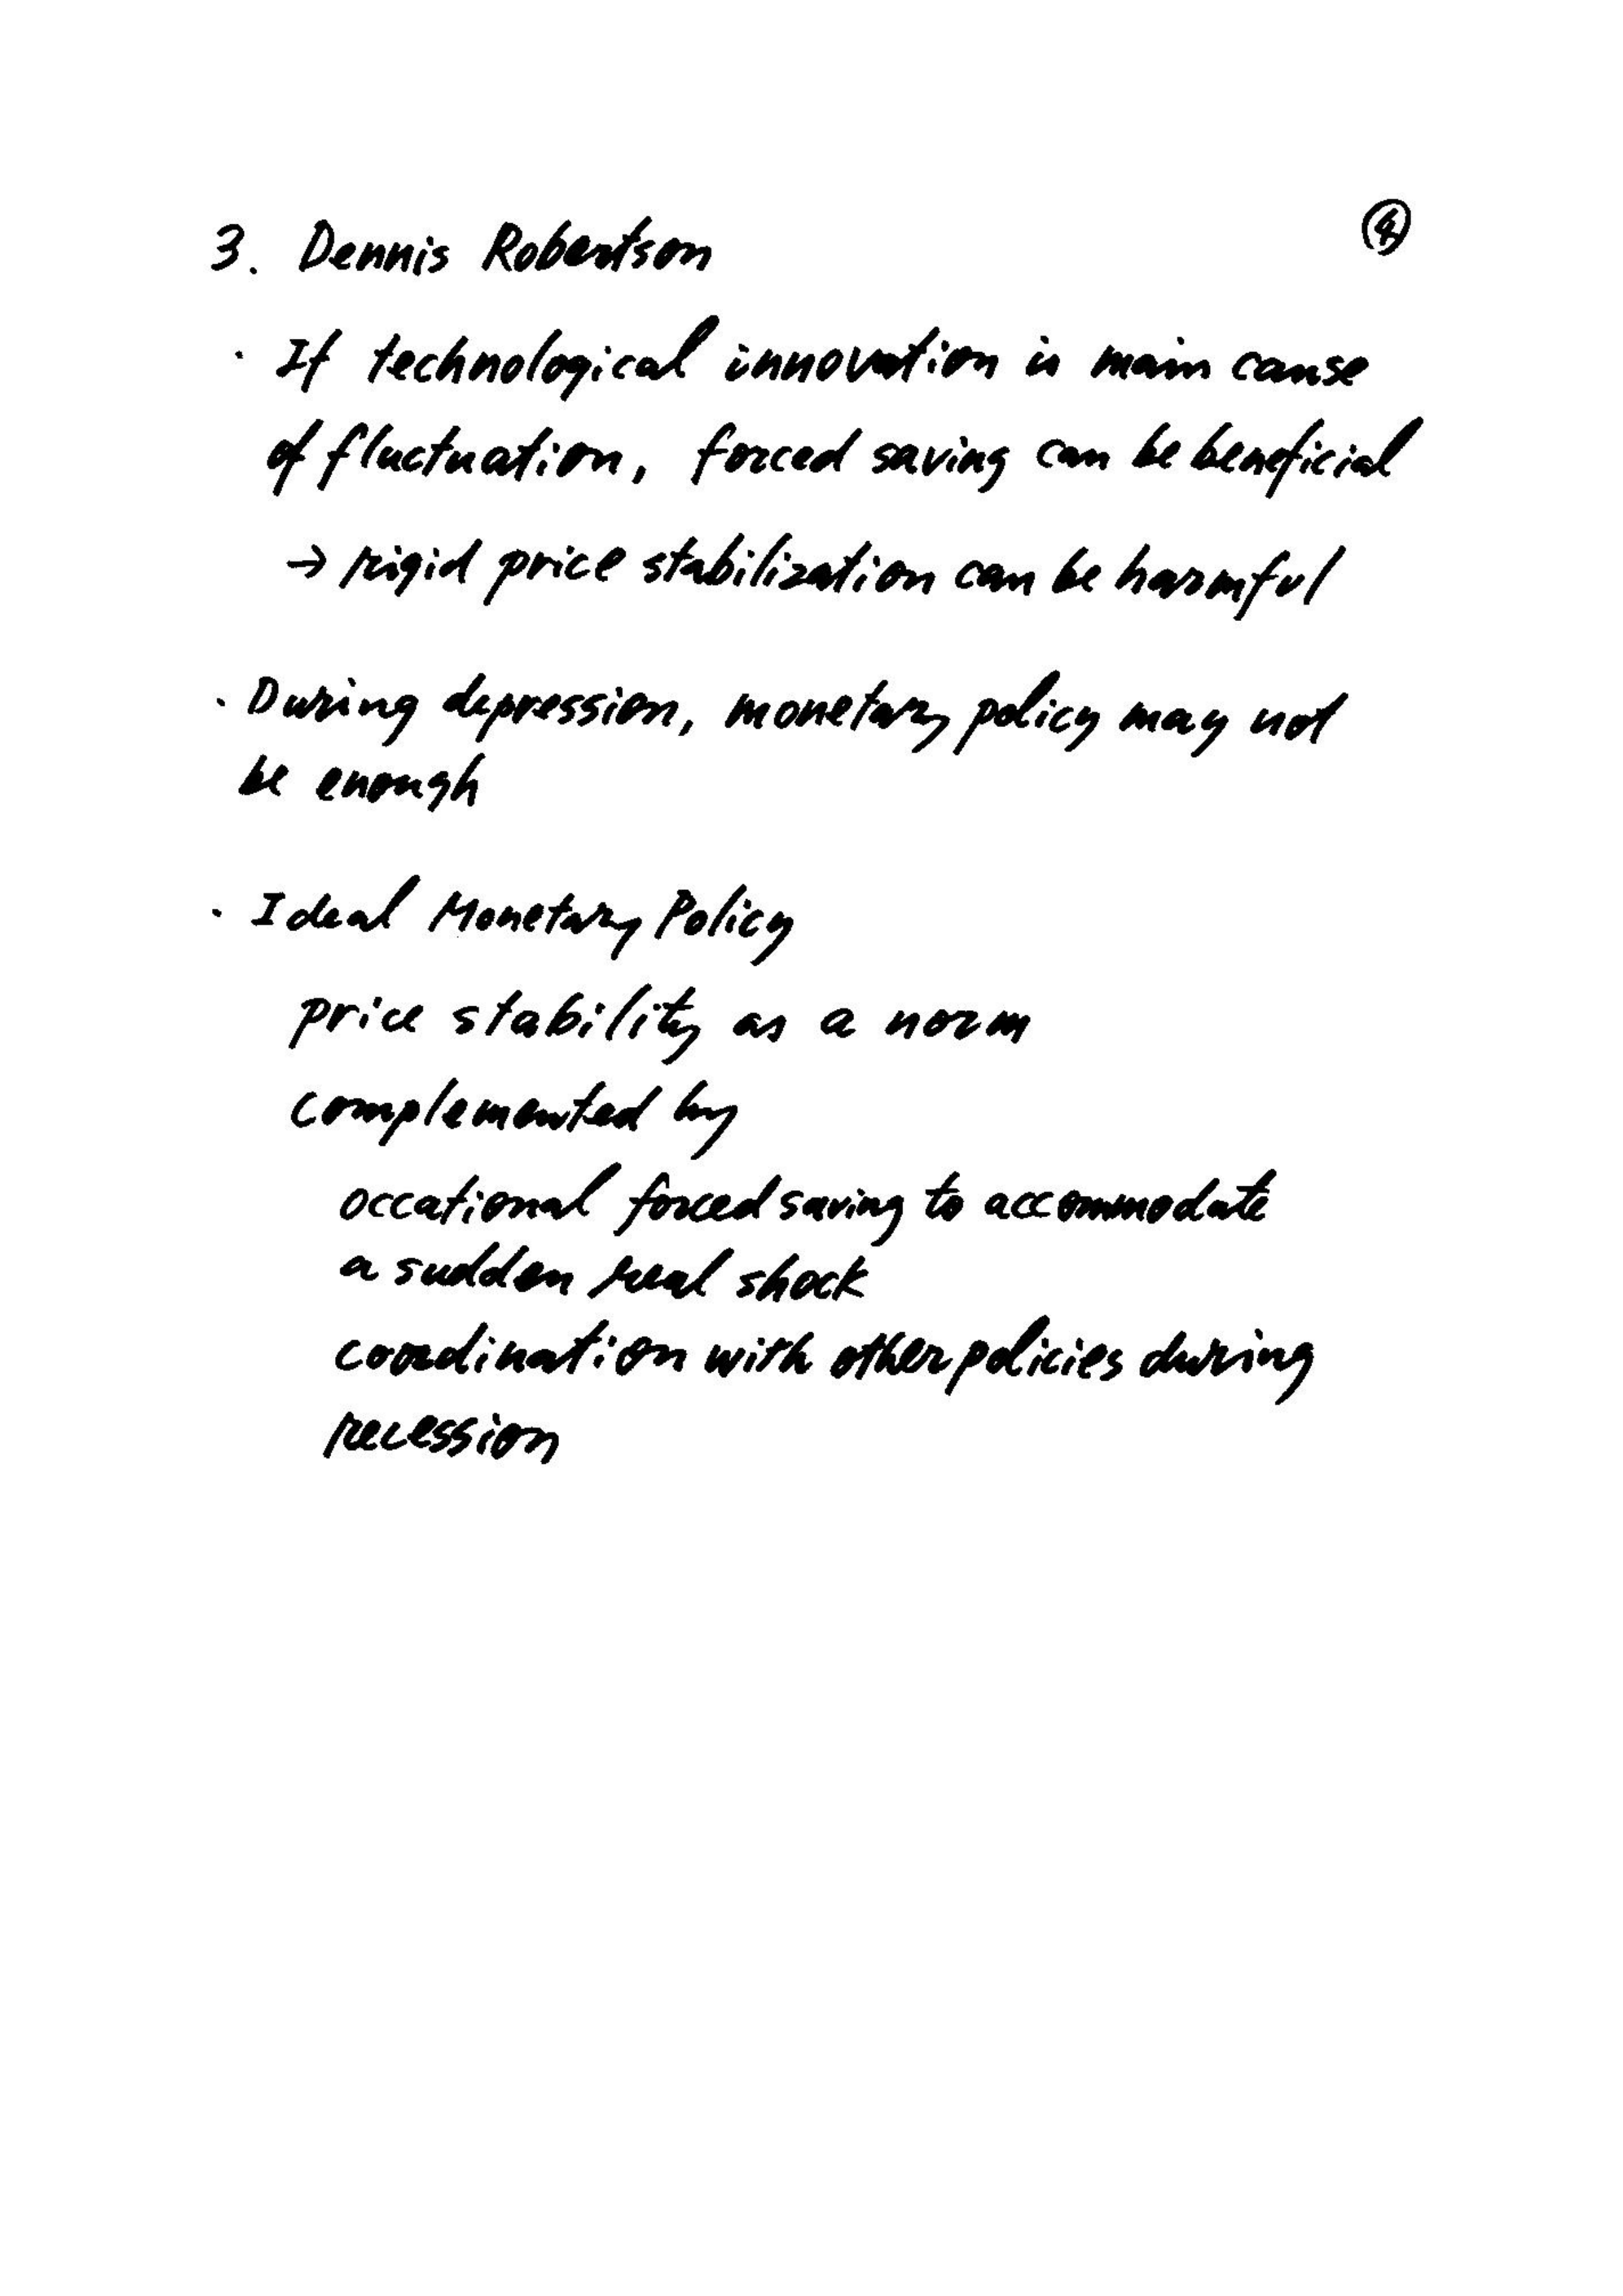 3. Dennis Robertson
④
· If technological innovation is main cause
of fluctuation, forced saving can be beneficial
→ rigid price stabilization can be harmful
· During depression, monetary policy may not
be enough
· Ideal Monetary Policy
price stability as a norm
complemented by
occational forced saving to accommodate
a sudden real shock
coordination with other policies during
recession